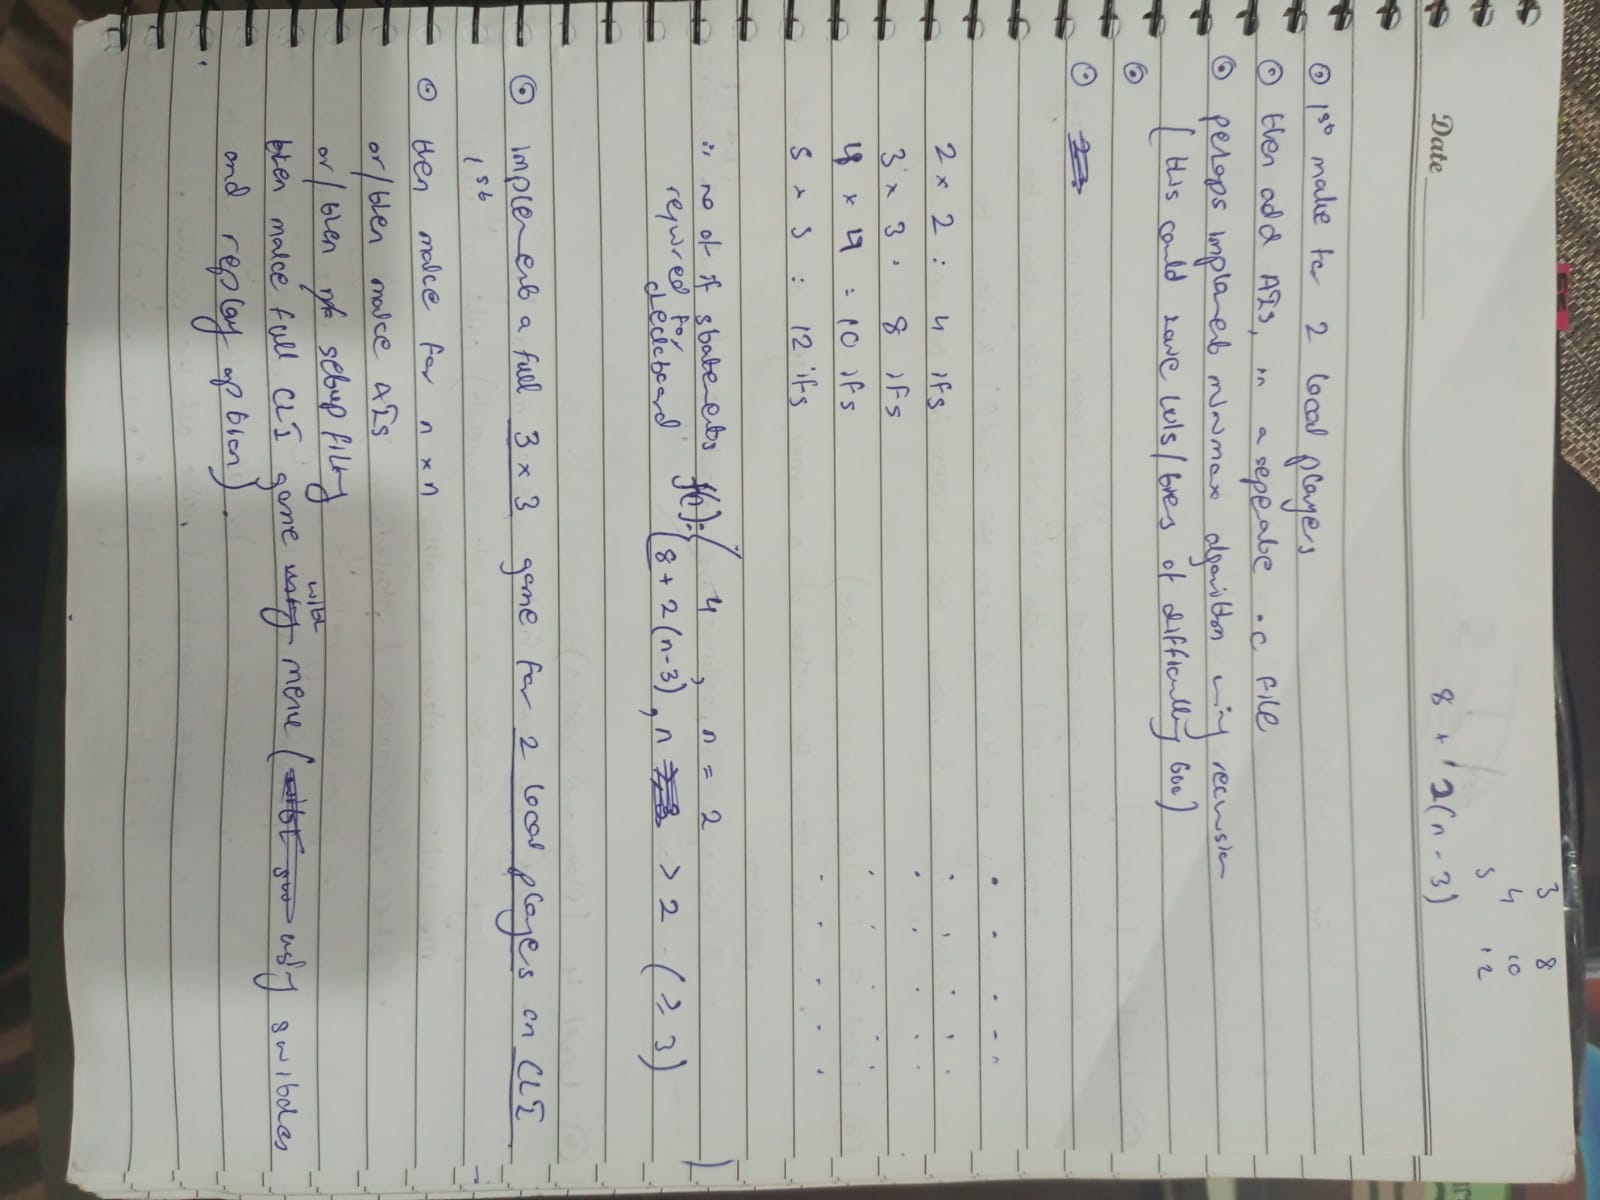 3 8
4 10
5 12
Date
8 + 2(n-3)
1st make for 2 local players
then add AIs, in a seperate .c file
perhaps implement minmax algorithm using recursion
(this could have lvls/tiers of difficulty too)
2 x 2 : 4 ifs
3 x 3 : 8 ifs
4 x 4 : 10 ifs
5 x 5 : 12 ifs
∴ no of if statements f(n): { 4 , n = 2
required for checkboard 8 + 2(n-3), n > 2 (≥ 3)
implement a full 3 x 3 game for 2 local players on CLI
1st
then make for n x n
or/then make AIs
or/then setup filing
then make full CLI game with menu ( using switches
and replay option).